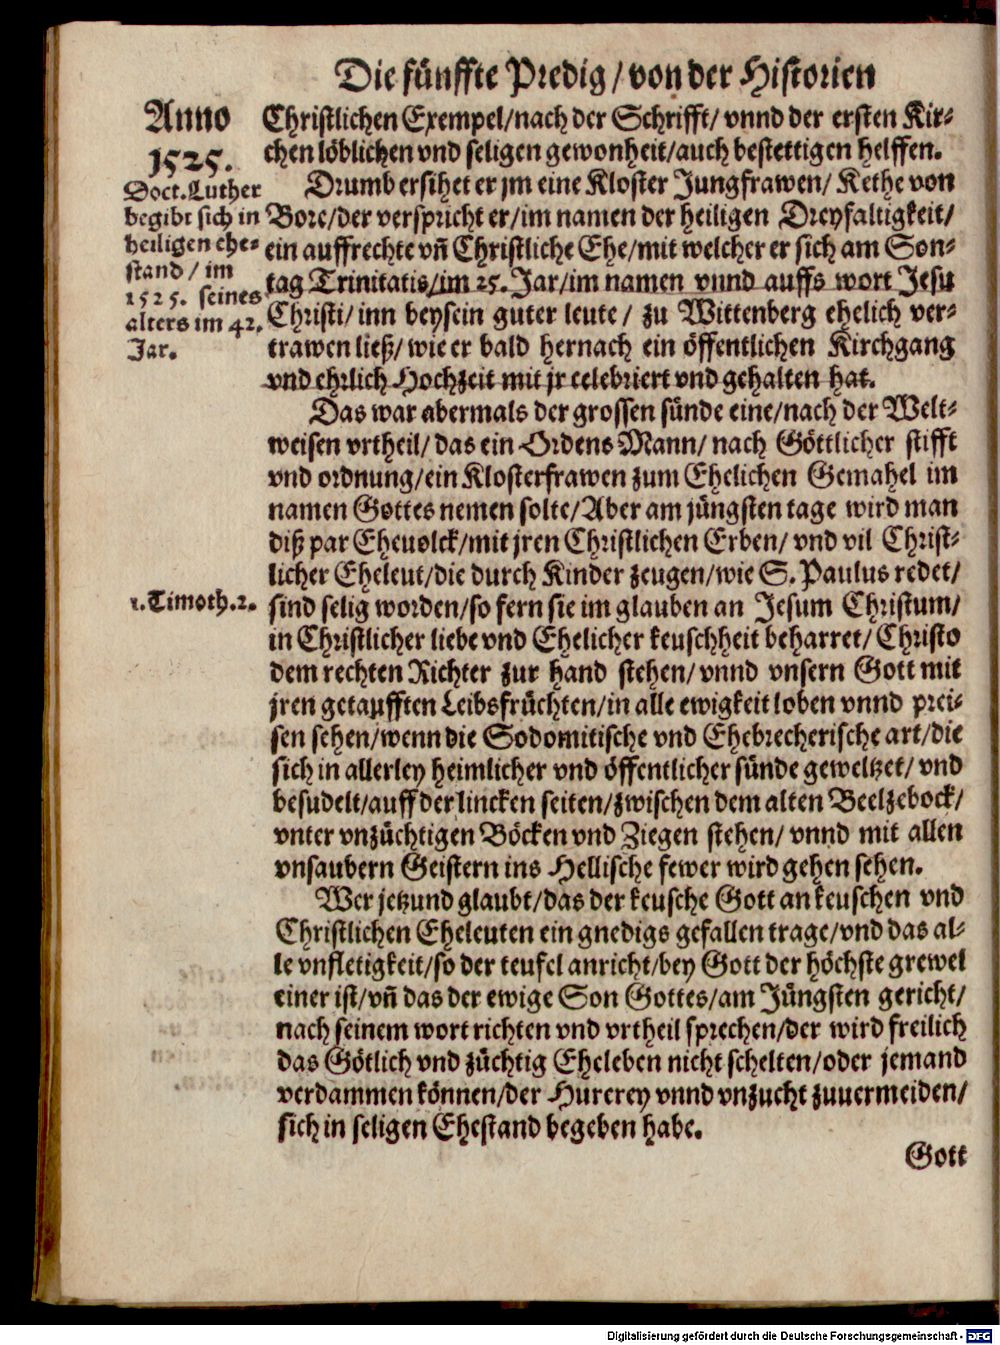 Die fünffte Predig/ von der Historien
Anno
1525.
Doct. Luther
begibt sich in
heiligen ehe-
stand/ im
1525. seines
alters im 42.
Jar.
Christlichen Exempel/nach der Schrifft/ vnnd der ersten Kir-
chen löblichen vnd seligen gewonheit/auch bestettigen helffen.
Drumb ersihet er jm eine Kloster Jungfrawen/ Kethe von
Bore/der verspricht er/im namen der heiligen Dreyfaltigkeit/
ein auffrechte vñ Christliche Ehe/mit welcher er sich am Son-
tag Trinitatis/im 25. Jar/im namen vnnd auffs wort Jesu
Christi/ inn beysein guter leute/ zu Wittenberg ehelich ver-
trawen ließ/ wie er bald hernach ein öffentlichen Kirchgang
vnd ehrlich Hochzeit mit jr celebriert vnd gehalten hat.
Das war abermals der grossen sünde eine/nach der Welt-
weisen vrtheil/ das ein Ordens Mann/ nach Göttlicher stifft
vnd ordnung/ein Klosterfrawen zum Ehelichen Gemahel im
namen Gottes nemen solte/Aber am jüngsten tage wird man
diß par Eheuolck/mit jren Christlichen Erben/ vnd vil Christ-
licher Eheleut/die durch Kinder zeugen/wie S. Paulus redet/
1. Timoth. 2.
sind selig worden/so fern sie im glauben an Jesum Christum/
in Christlicher liebe vnd Ehelicher keuschheit beharret/ Christo
dem rechten Richter zur hand stehen/ vnnd vnsern Gott mit
jren getaufften Leibsfrüchten/in alle ewigkeit loben vnnd prei-
sen sehen/wenn die Sodomitische vnd Ehebrecherische art/die
sich in allerley heimlicher vnd öffentlicher sünde geweltzet/ vnd
besudelt/auff der lincken seiten/zwischen dem alten Beelzebock/
vnter vnzüchtigen Böcken vnd Ziegen stehen/ vnnd mit allen
vnsaubern Geistern ins Hellische fewer wird gehen sehen.
Wer jetzund glaubt/das der keusche Gott an keuschen vnd
Christlichen Eheleuten ein gnedigs gefallen trage/vnd das al-
le vnfletigkeit/so der teufel anricht/bey Gott der höchste grewel
einer ist/vñ das der ewige Son Gottes/am Jüngsten gericht/
nach seinem wort richten vnd vrtheil sprechen/der wird freilich
das Götlich vnd züchtig Eheleben nicht schelten/oder jemand
verdammen können/der Hurerey vnnd vnzucht zuuermeiden/
sich in seligen Ehestand begeben habe.
Gott
Digitalisierung gefördert durch die Deutsche Forschungsgemeinschaft - DFG